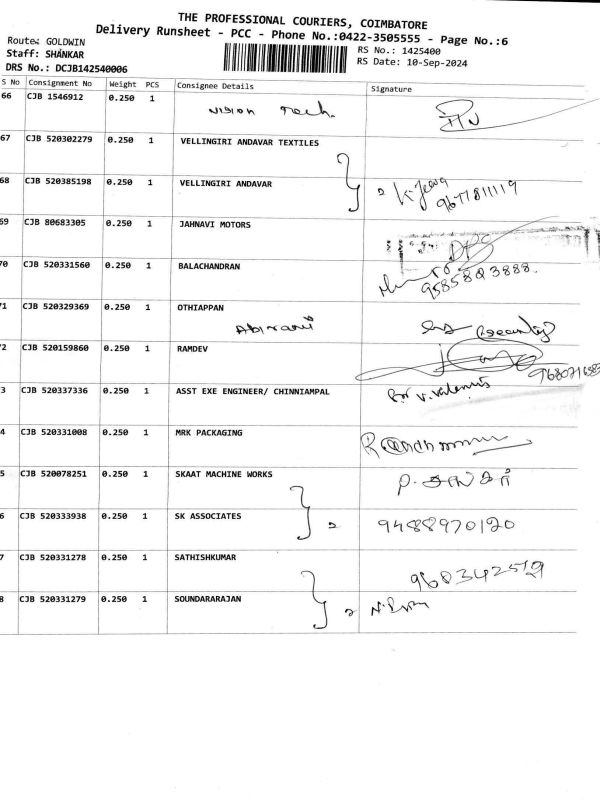 THE PROFESSIONAL COURIERS, COIMBATORE
Delivery Runsheet - PCC - Phone No.:0422-3505555 - Page No.:6
Route: GOLDWIN
RS No.: 1425400
Staff: SHANKAR
RS Date: 10-Sep-2024
DRS No.: DCJB142540006
S No Consignment No Weight PCS Consignee Details Signature
66 CJB 1546912 0.250 1 vision Tech.
67 CJB 520302279 0.250 1 VELLINGIRI ANDAVAR TEXTILES
68 CJB 520385198 0.250 1 VELLINGIRI ANDAVAR 2
9677811119
69 CJB 80683305 0.250 1 JAHNAVI MOTORS
70 CJB 520331560 0.250 1 BALACHANDRAN
95858 03888.
71 CJB 520329369 0.250 1 OTHIAPPAN
Abirami
72 CJB 520159860 0.250 1 RAMDEV
3 CJB 520337336 0.250 1 ASST EXE ENGINEER/ CHINNIAMPAL
4 CJB 520331008 0.250 1 MRK PACKAGING
5 CJB 520078251 0.250 1 SKAAT MACHINE WORKS
6 CJB 520333938 0.250 1 SK ASSOCIATES 2 9488970120
7 CJB 520331278 0.250 1 SATHISHKUMAR
8 CJB 520331279 0.250 1 SOUNDARARAJAN 2